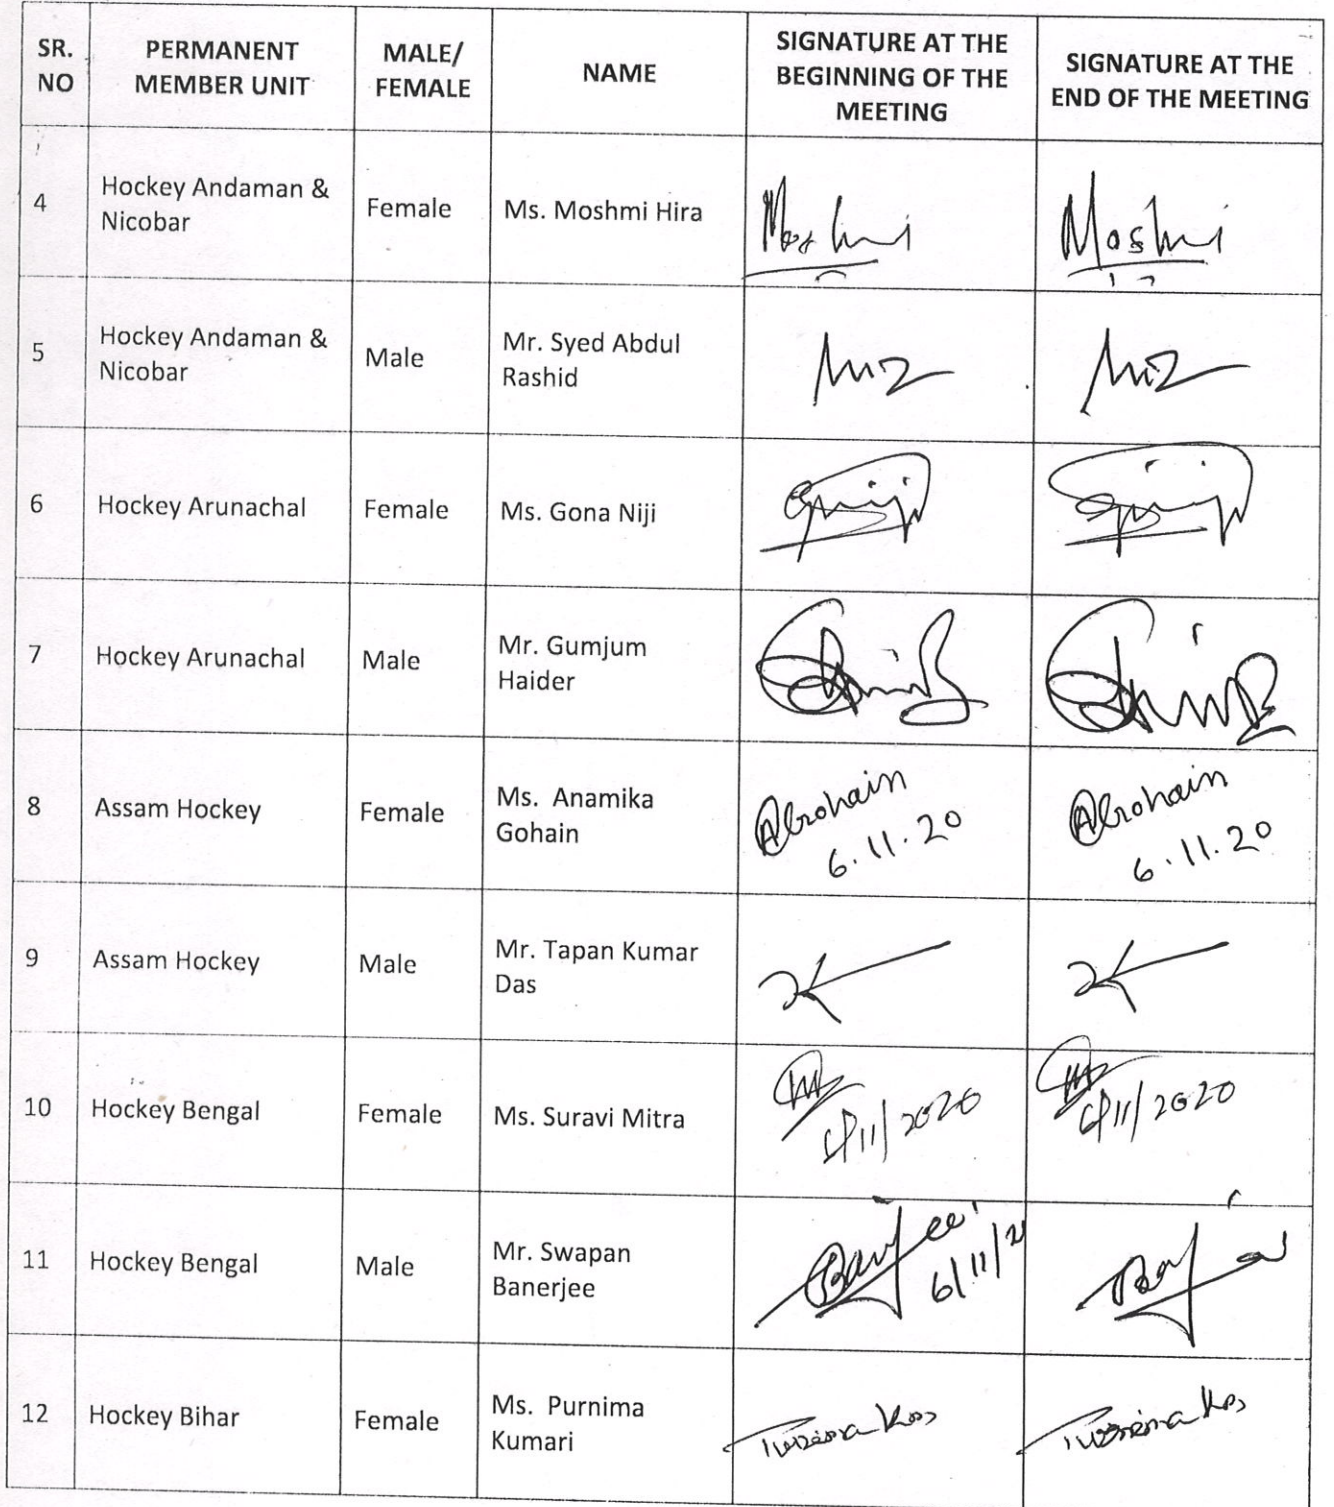 SR. NO
PERMANENT MEMBER UNIT
MALE/ FEMALE
NAME
SIGNATURE AT THE BEGINNING OF THE MEETING
SIGNATURE AT THE END OF THE MEETING
4
Hockey Andaman &
Nicobar
Female
Ms. Moshmi Hira
Moshmi
Moshmi
5
Hockey Andaman &
Nicobar
Male
Mr. Syed Abdul
Rashid
6
Hockey Arunachal
Female
Ms. Gona Niji
7
Hockey Arunachal
Male
Mr. Gumjum
Haider
8
Assam Hockey
Female
Ms. Anamika
Gohain
AGohain
6.11.20
AGohain
6.11.20
9
Assam Hockey
Male
Mr. Tapan Kumar
Das
10
Hockey Bengal
Female
Ms. Suravi Mitra
6/11/2020
6/11/2020
11
Hockey Bengal
Male
Mr. Swapan
Banerjee
Banerjee
6/11/2
12
Hockey Bihar
Female
Ms. Purnima
Kumari